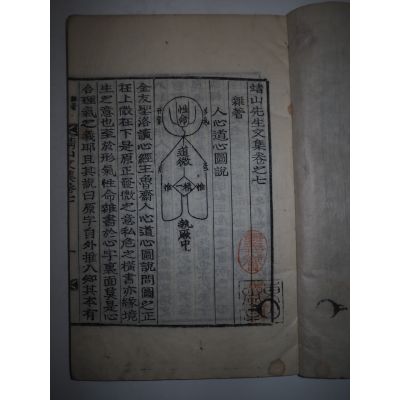 靖山先生文集卷之七
雜著
人心道心圖說
性命
道
微
惟
精一
惟
執厥中
金友聖洛讀心經王魯齋人心道心圖說問圖之正
在上微在下是原正發微之意私危之橫書亦緣境
生之意也至於形氣性命雖書於心字裏面莫是心
合理氣之義耶且其說曰原字自外推入鄕其本有